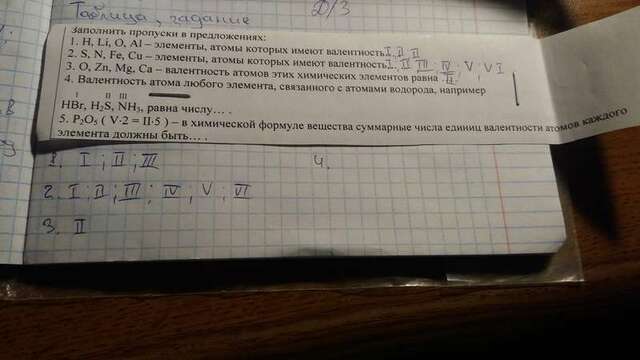 Таблица, задание Д/З
Заполнить пропуски в предложениях:
1. H, Li, O, Al – элементы, атомы которых имеют валентность I, II, III
2. S, N, Fe, Cu – элементы, атомы которых имеют валентность I; II; III; IV; V; VI
3. O, Zn, Mg, Ca – валентность атомов этих химических элементов равна II
4. Валентность атома любого элемента, связанного с атомами водорода, например
I II III
HBr, H₂S, NH₃, равна числу… .
5. P₂O₅ ( V·2 = II·5 ) – в химической формуле вещества суммарные числа единиц валентности атомов каждого
элемента должны быть… .
1. I ; II ; III 4.
2. I ; II ; III ; IV ; V ; VI
3. II